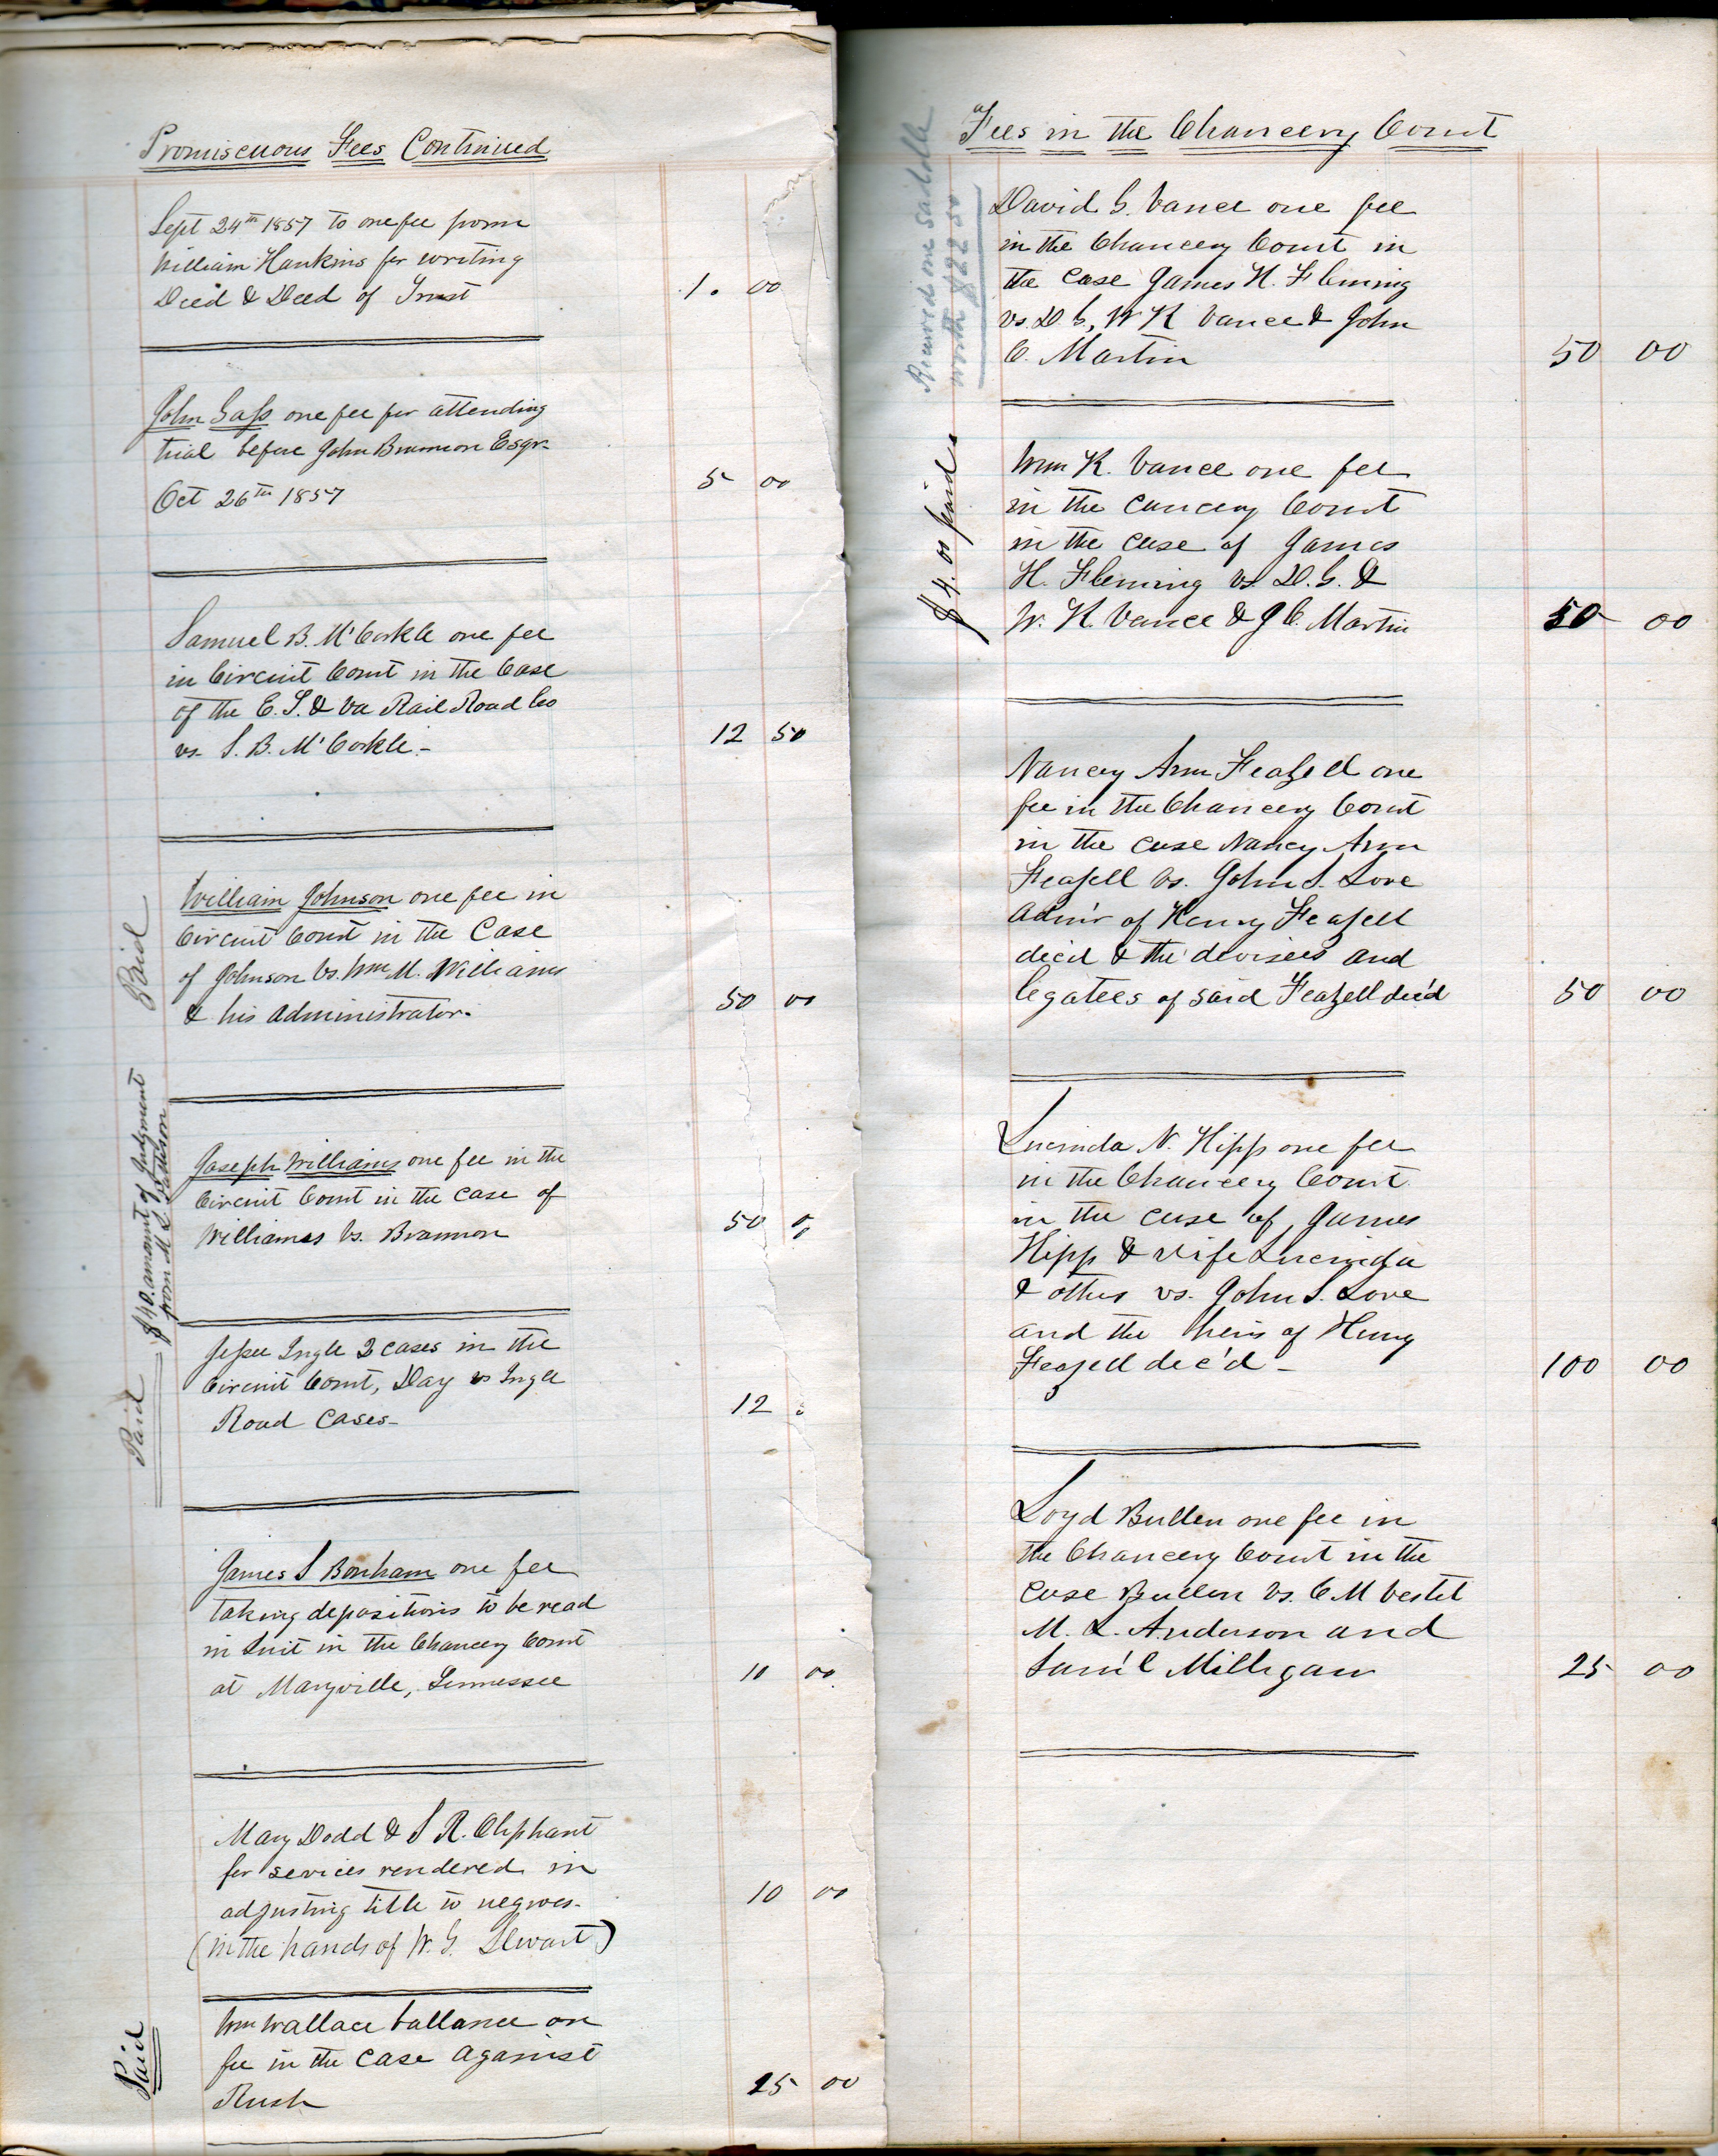 Promiscuous Fees Continued
Sept 24th 1857 to one fee from
William Hankins for writing
Deed & Deed of Trust 1. 00
John Gass one fee for attending
trial before John Brannon Esqr.
Oct 26th 1857 5 00
Samuel B. McCorkle one fee
in Circuit Court in the Case
of the E. T. & Va Rail Road Co
vs. S. B. McCorkle.- 12 50
Paid
William Johnson one fee in
Circuit Court in the Case
of Johnson Vs. Wm M. Williams
& his administrator. 50 00
$40. amount of Judgment
from M. L.
Joseph Williams one fee in the
Circuit Court in the case of
Williams Vs. Brannon 50 00
Paid
Jessee Ingle 2 cases in the
Circuit Court, Day vs Ingle
Road Cases- 12
James S Bonham one fee
taking depositions to be read
in Suit in the Chancery Court
at Maryville, Tennessee 10 00
Mary Dodd & S R. Oliphant
for sevices rendered in
adjusting title to negroes- 10 00
(in the hands of W. G. Stewart)
Paid
Wm Wallace ballance on
fee in the case against
Rush 25 00
Fees in the Chancery Court
Received one saddle
worth $22 50
David G. Vance one fee
in the Chancery Court in
the case James H. Fleming
vs. D G, W K Vance & John
C. Martin 50 00
$4. 00 paid
Wm K. Vance one fee
in the Cancery Court
in the case of James
H. Fleming vs D. G. &
W. K. Vance & J C. Martin 50 00
Nancy Ann Feazell one
fee in the Chancery Court
in the case Nancy Ann
Feazell Vs. John S. Love
Adm'r of Henry Feazell
dec'd & the devisees and
legatees of said Feazell dec'd 50 00
Lucinda N. Hipp one fee
in the Chancery Court
in the case of James
Hipp & Wife Lucinda
& others vs. John S. Love
and the heirs of Henry
Feazell dec'd - 100 00
Loyd Bullen one fee in
the Chancery Court in the
case Bullen Vs. C M Vestel
M. L. Anderson and
Sam'l Milligan 25 00